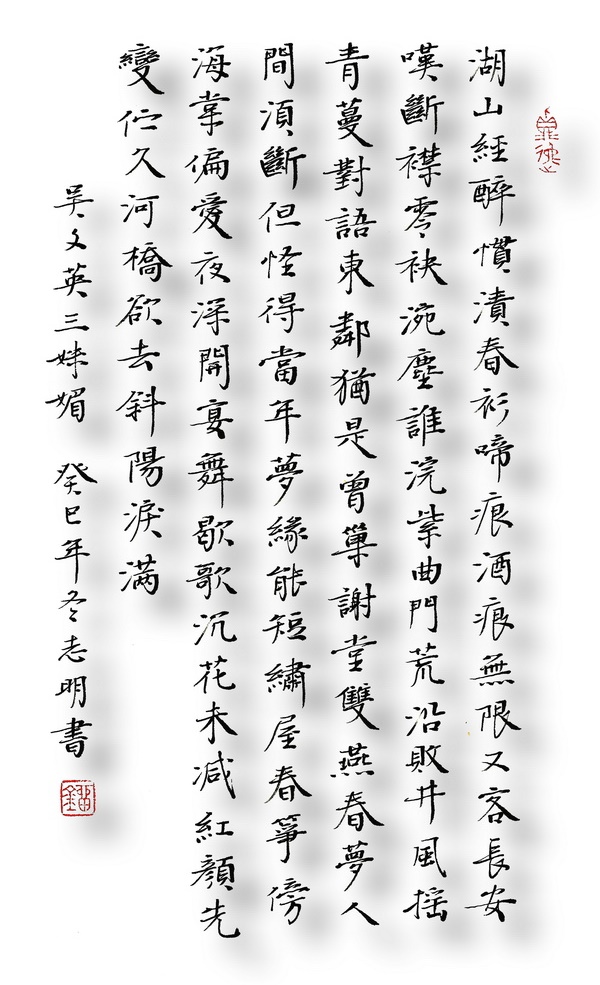 湖山經醉慣漬春衫啼痕酒痕無限又客長安
嘆斷襟零袂涴塵誰浣紫曲門荒沿敗井風搖
青蔓對語東鄰猶是曾巢謝堂雙燕春夢人
間須斷但怪得當年夢緣能短繡屋春箏傍
海棠偏愛夜深開宴舞歇歌沉花未減紅顏先
變佇久河橋欲去斜陽淚滿
吳文英三姝媚 癸巳年冬志明書